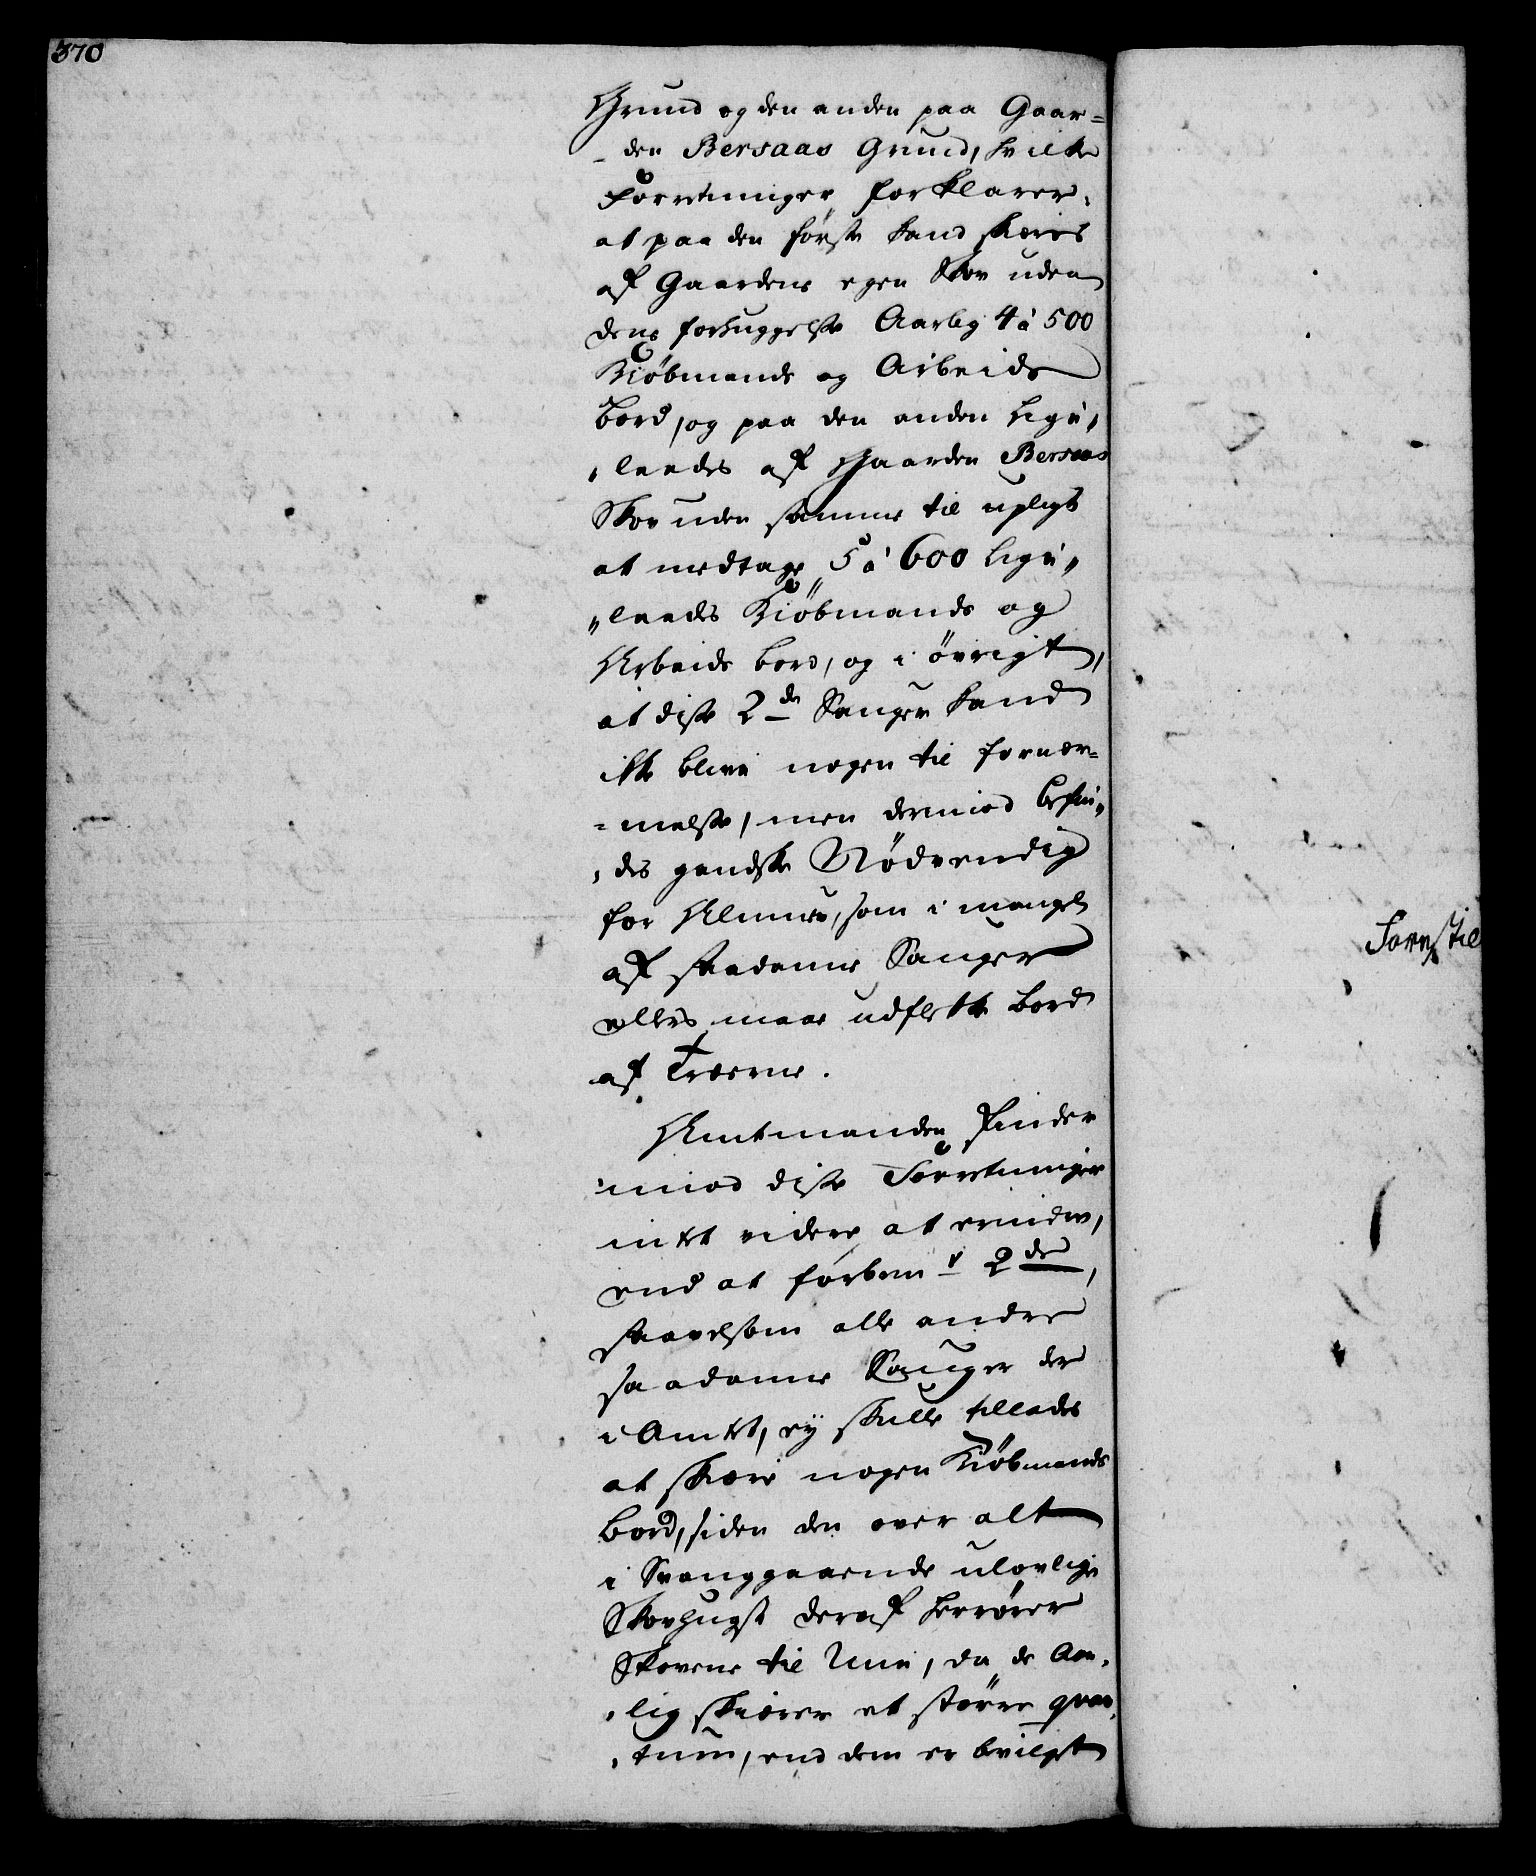 370
Grund og den anden paa Gaar=
-den Bersaas Grund, hvilke
Forretninger forklarer,
at paa den første kand skieres
af Gaardens egen Skov uden
dens forhuggelse Aarlig 4 à 500
Kiøbmands og Arbeids
bord, og paa den anden lige„
„leedes af Gaarden Bersaas
Skov uden samme til upligt
at medtage 5 à 600 lige„
„leedes Kiøbmands og
Arbeids bord, og i øvrigt,
at disse 2de Sauger kand
ikke blive nogen til fornær=
=melse, men derimod befin„
„des gandske Nødvendig
for Almuen, som i mangel
af saadanne Sauger
ellers maae udflekke bord
af Træerne.
Amtmanden finder
imod disse Forretninger
intet videre at erindre,
end at forbemte 2de,
saavelsom alle andre
saadanne Sauger der
i Amtet, ey skulle tillades
at skiære nogen Kiøbmands
bord, siden den over alt
i Svanggaaende ulovlige
Skovhugst deraf herrører
Skovene til Ruin, da de Aar„
„lig skiærer et større qvan„
„tum, end dem er bevilget
Forestil